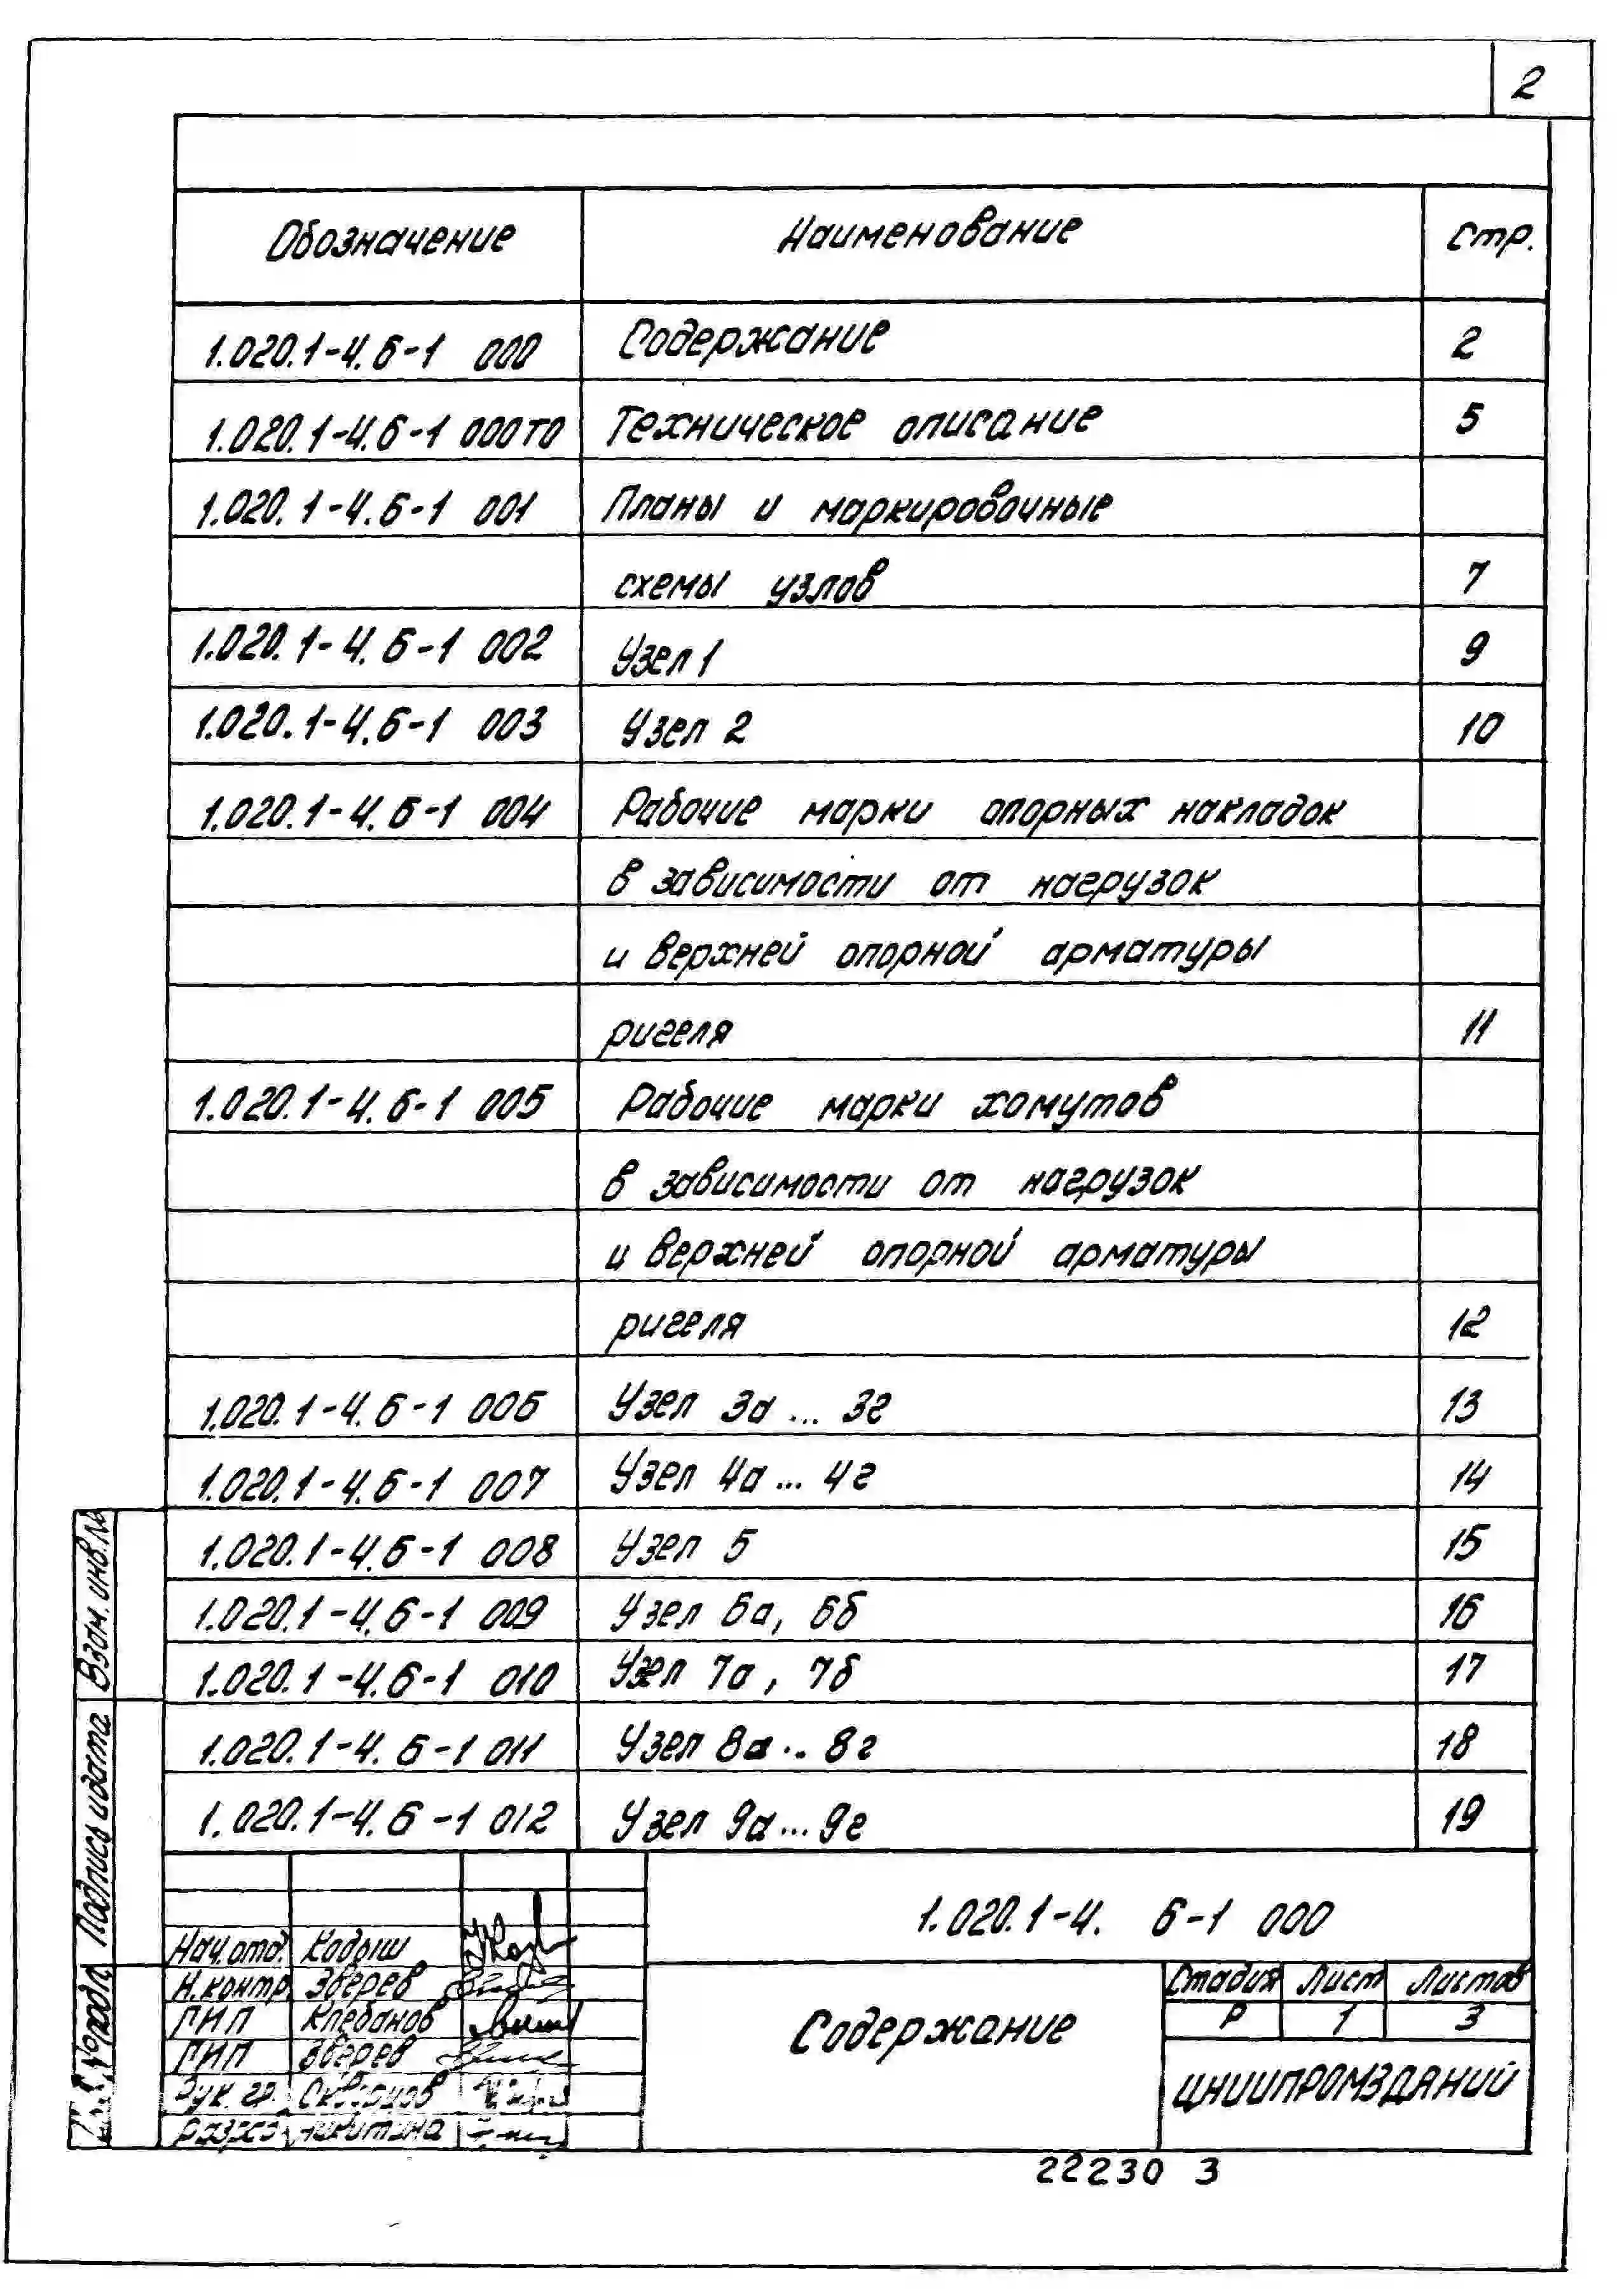 2
Обозначение Наименование Стр.
1.020.1-4.6-1 000 Содержание 2
1.020.1-4.6-1 000ТО Техническое описание 5
1.020.1-4.6-1 001 Планы и маркировочные
схемы узлов 7
1.020.1-4.6-1 002 Узел 1 9
1.020.1-4.6-1 003 Узел 2 10
1.020.1-4.6-1 004 Рабочие марки опорных накладок
в зависимости от нагрузок
и верхней опорной арматуры
ригеля 11
1.020.1-4.6-1 005 Рабочие марки хомутов
в зависимости от нагрузок
и верхней опорной арматуры
ригеля 12
1.020.1-4.6-1 006 Узел 3а ... 3г 13
1.020.1-4.6-1 007 Узел 4а ... 4г 14
1.020.1-4.6-1 008 Узел 5 15
1.020.1-4.6-1 009 Узел 6а, 6б 16
1.020.1-4.6-1 010 Узел 7а, 7б 17
1.020.1-4.6-1 011 Узел 8а ... 8г 18
1.020.1-4.6-1 012 Узел 9а ... 9г 19
Взам. инв. №
Подпись и дата
№ подл.
1.020.1-4. 6-1 000
Нач. отд. Кодыш
Н. контр. Зверев
ГИП Клебанов
ГИП Зверев
Рук. гр. Скворцов
Разраб. Никитина
Содержание
Стадия Лист Листов
Р 1 3
ЦНИИПРОМЗДАНИЙ
22230 3